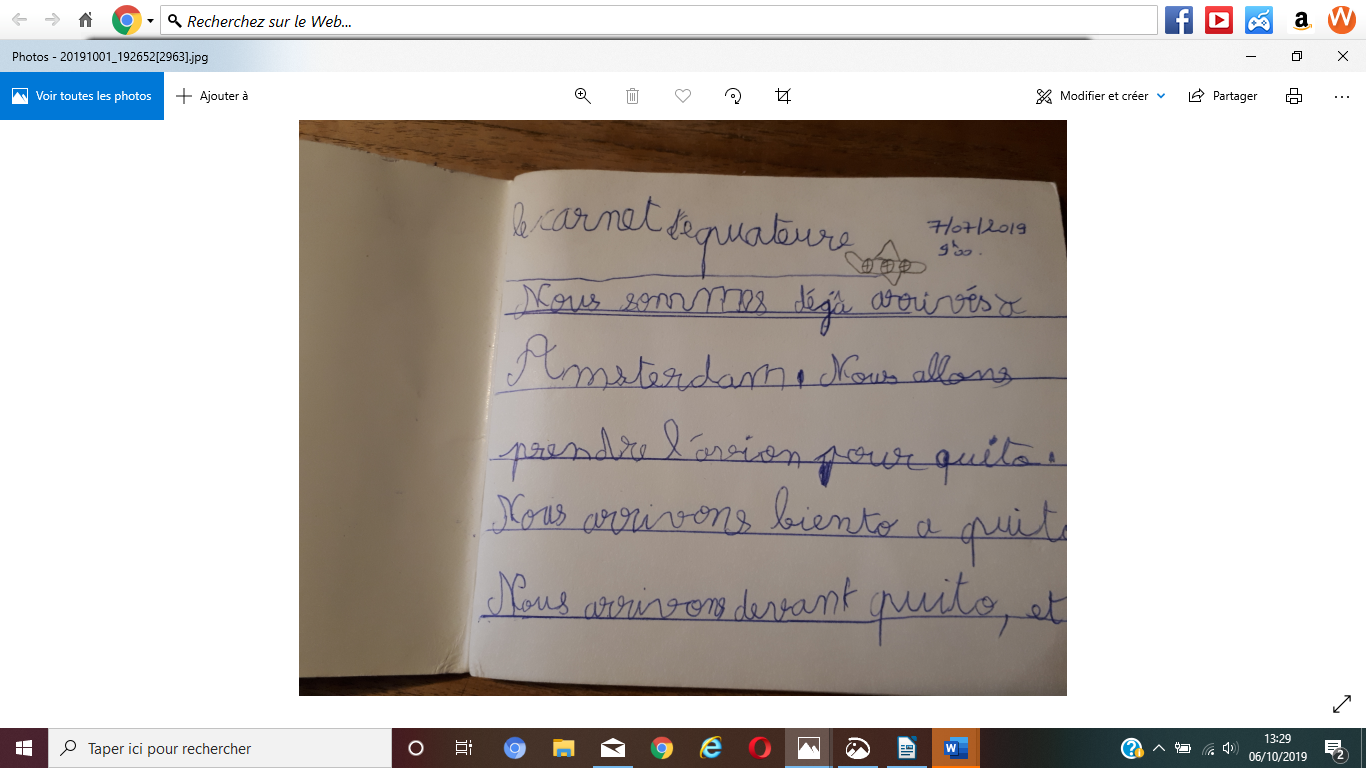 Recherchez sur le Web...
Photos - 20191001_192652[2963].jpg
Voir toutes les photos
Ajouter à
Modifier et créer
Partager
le carnet d'equateure
7/07/2019
9h00.
Nous sommes déjâ arrivés a
Amsterdam. Nous allons
prendre l'avion pour quito.
Nous arrivons biento a quito
Nous arrivons devant quito, et
Taper ici pour rechercher
13:29
06/10/2019
2